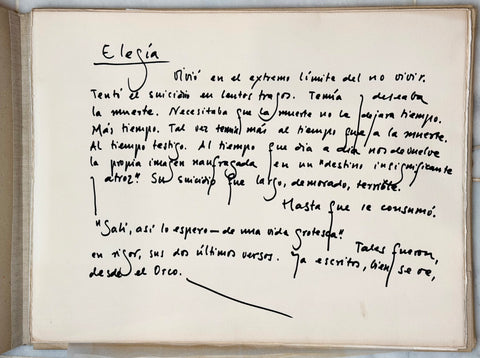 Elegía
Vivió en el extremo límite del no vivir.
Tentó el suicidio en lentos tragos. Temía y deseaba
la muerte. Necesitaba que la muerte no le dejara tiempo.
Más tiempo. Tal vez temió más al tiempo que a la muerte.
Al tiempo testigo. Al tiempo que día a día nos devuelve
la propia imagen naufragada en un "destino insignificante
y atroz". Su suicidio fue largo, demorado, terrible.
Hasta que se consumó.
"Salí, así lo espero—de una vida grotesca".
Tales fueron,
en rigor, sus dos últimos versos. Ya escritos, bien se ve,
desde el Orco.